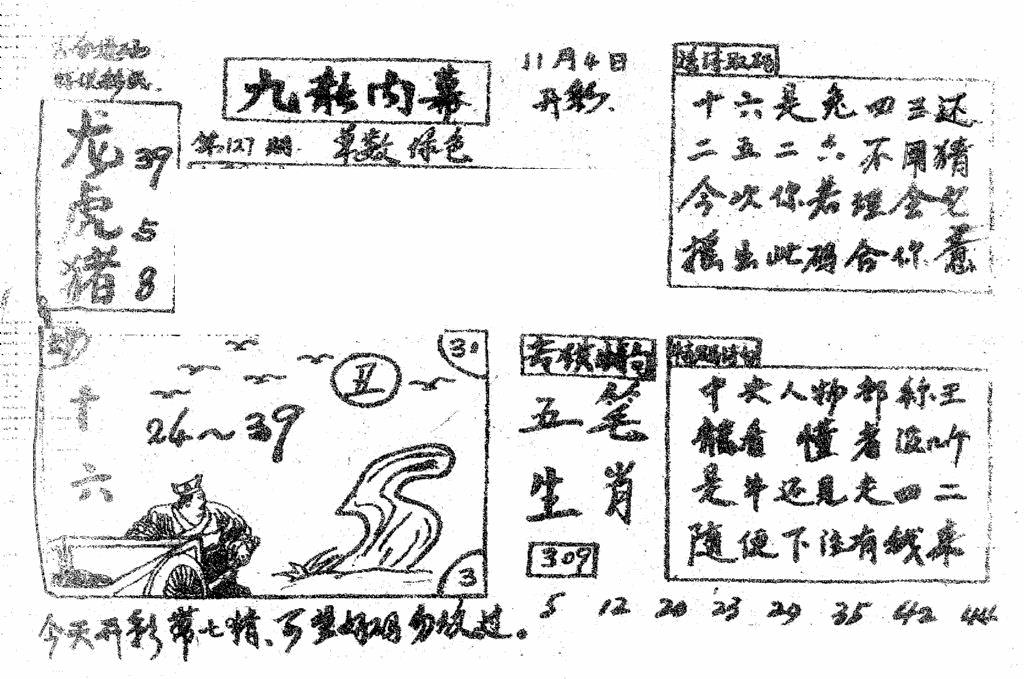 九龙内幕
第127期 单数绿色
11月4日
开彩.
龙 39
虎 5
猪 8
十六是兔四三还
二五二六不用猪
今次你若理会它
摇出此码合你意
十六
26～39
丑
3
五笔
生肖
309
中央人物都称王
能看懂者没几个
是牛还是走四二
随便下注有钱来
5 12 20 23 29 35 42 44
今天开彩第七精、可望好码勿放过。